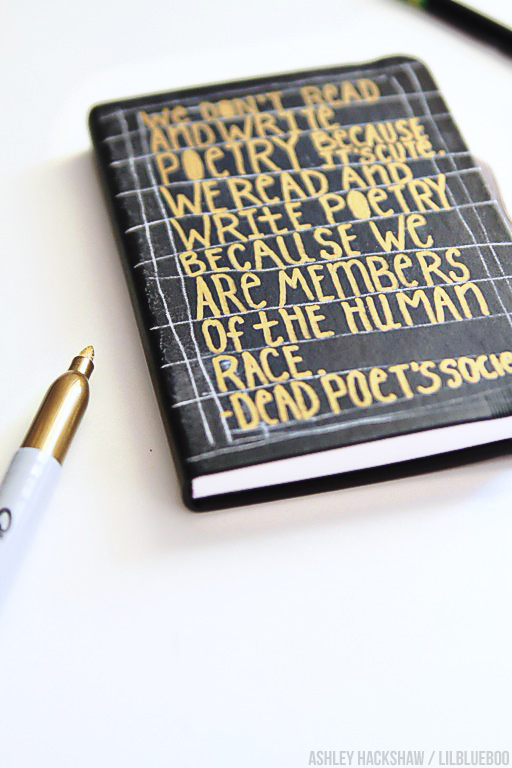 WE DON'T READ
AND WRITE
POETRY BECAUSE
IT'S CUTE.
WE READ AND
WRITE POETRY
BECAUSE WE
ARE MEMBERS
OF THE HUMAN
RACE.
-DEAD POET'S SOCIE
ASHLEY HACKSHAW / LILBLUEBOO